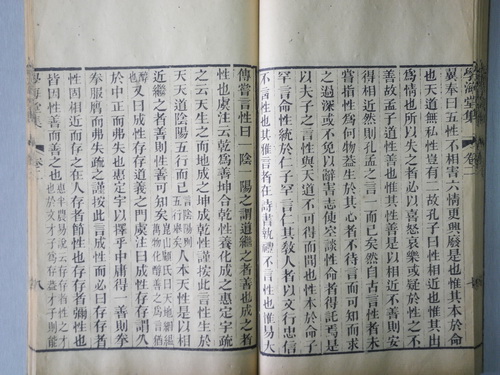 學海堂集 卷二
翼奉曰五性不相害六情更興廢是也惟其本於命
也天道無私性豈有二故孔子曰性相近也惟其由
爲情也所以失之者必以喜怒哀樂或疑於性之不
善故孟子道性善也惟其性善是以相近不善則安
得相近然則孔孟之言一而已矣然自古言性者未
嘗指性爲何物蓋生於其心者不待言而可知而求
之過深或不免以辭害志使空談性命者得託焉是
以夫子之言性與天道不可得而聞也性本於命子
罕言命性統於仁子罕言仁其敎人者以文行忠信
不言性也其惟言者在詩書執禮不言性也惟易大
傳嘗言性曰一陰一陽之謂道繼之者善也成之者
性也虞注云乾爲善坤合乾性養化成之惠定宇疏
之云天生之而地成之坤成乾性謹按此言性生於
天天道陰陽五行而已言陰陽則五行寓矣人本天性是以相
近繼之者善則性善可知矣崑山顧氏曰天地絪縕萬物化醇善之爲言猶
醇也又曰成性存存道義之門虞注曰成性存存謂久
於中正而弗失也惠定宇以擇乎中庸得一善則拳
拳服膺而弗失疏之謹按此言成性而必曰存存者
性也相近而存之在人存者節性也存存者彌性也
皆因性善而善之也惠半農易說云存存者性之才也於文才子爲存益才子則能
學海堂集 卷二 八